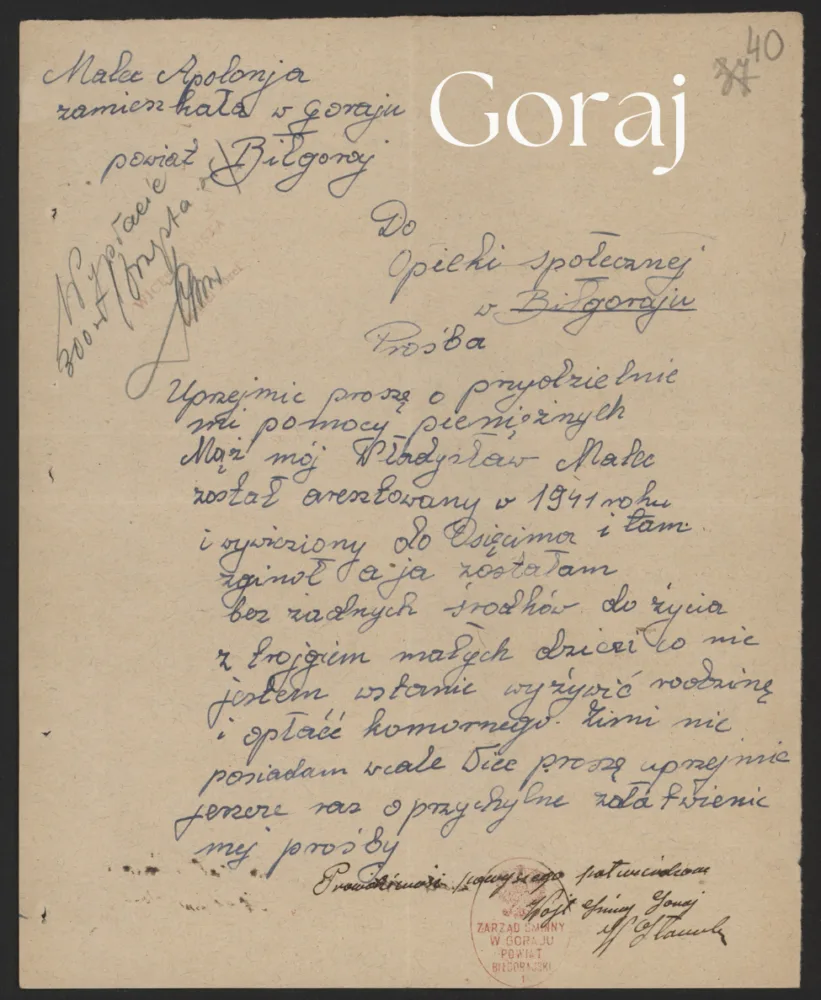 40
37
Goraj
Malec Apolonja
zamieszkała w Goraju
powiat Biłgoraj
Wypłacić
300 zł
Do
Opieki społecznej
w Biłgoraju
Prośba
Uprzejmie proszę o przydzielnie
mi pomocy pieniężnych
Mąż mój Władysław Malec
został aresztowany w 1941 roku
i wywieziony do Osięcima i tam
zginoł a ja zostałam
bez żadnych środków do życia
z trojgiem małych dzieci co nie
jestem wstanie wyżywić rodzinę
i opłaćć komornego. Zimi nie
posiadam wcale Więc proszę uprzejmie
jeszcze raz o przychylne załatwienie
mej prośby
Prawdziwość powyższego potwierdzam
Wójt Gminy Goraj
ZARZĄD GMINY
W GORAJU
POWIAT
BIŁGORAJSKI